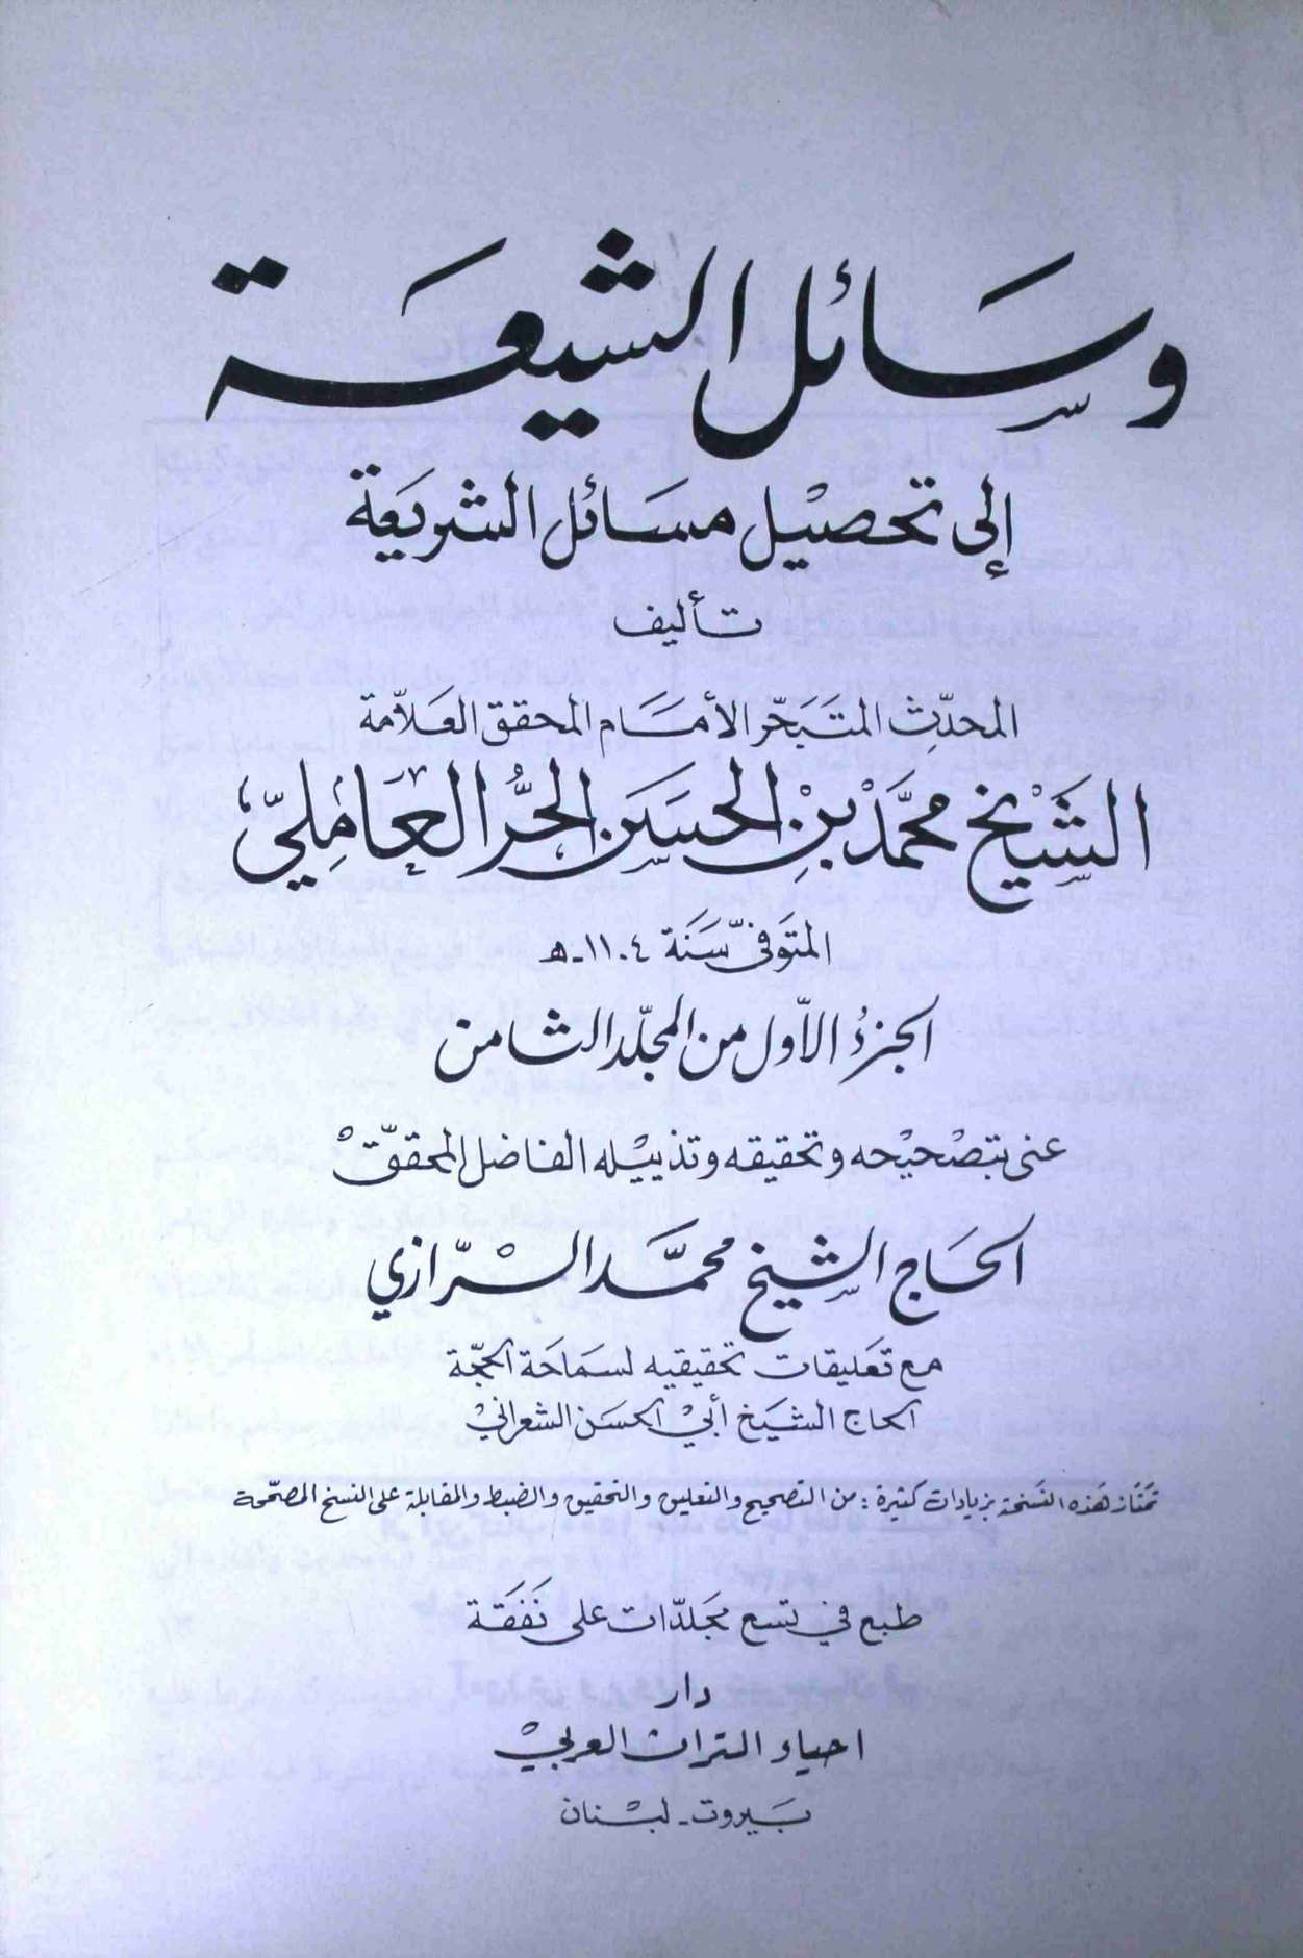 وسائل الشيعة
إلى تحصيل مسائل الشريعة
تأليف
المحدّث المتبحّر الأمام المحقق العلاّمة
الشيخ محمد بن الحسن الحر العاملي
المتوفى سنة ١١٠٤ هـ
الجزء الاّول من المجلّد الثامن
عنى بتصحيحه وتحقيقه وتذييله الفاضل المحقق
الحاج الشيخ محمّد الرّازي
مع تعليقات تحقيقيه لسماحة الحجّة
الحاج الشيخ أبي الحسن الشعراني
تمتاز هذه النسخة بزيادات كثيرة : من التصحيح والتعليق والتحقيق والضبط والمقابلة على النسخ المصحّحة
طبع في تسع مجلدّات على نَفَقَة
دار
احياء التراث العربي
بيروت - لبنان